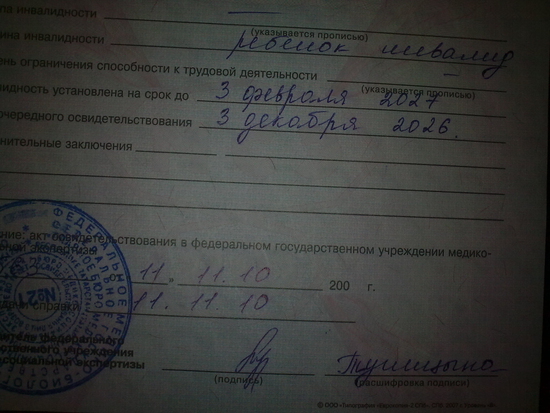 па инвалидности —
(указывается прописью)
ина инвалидности ребенок инвалид
(указывается прописью)
нь ограничения способности к трудовой деятельности —
идность установлена на срок до 3 февраля 2027
очередного освидетельствования 3 декабря 2026.
нительные заключения
ние: акт освидетельствования в федеральном государственном учреждении медико-
экспертизы от 11 » 11.10 200 г.
справки 11.11.10
федерального
учреждения
социальной экспертизы
(подпись) (расшифровка подписи)
№21